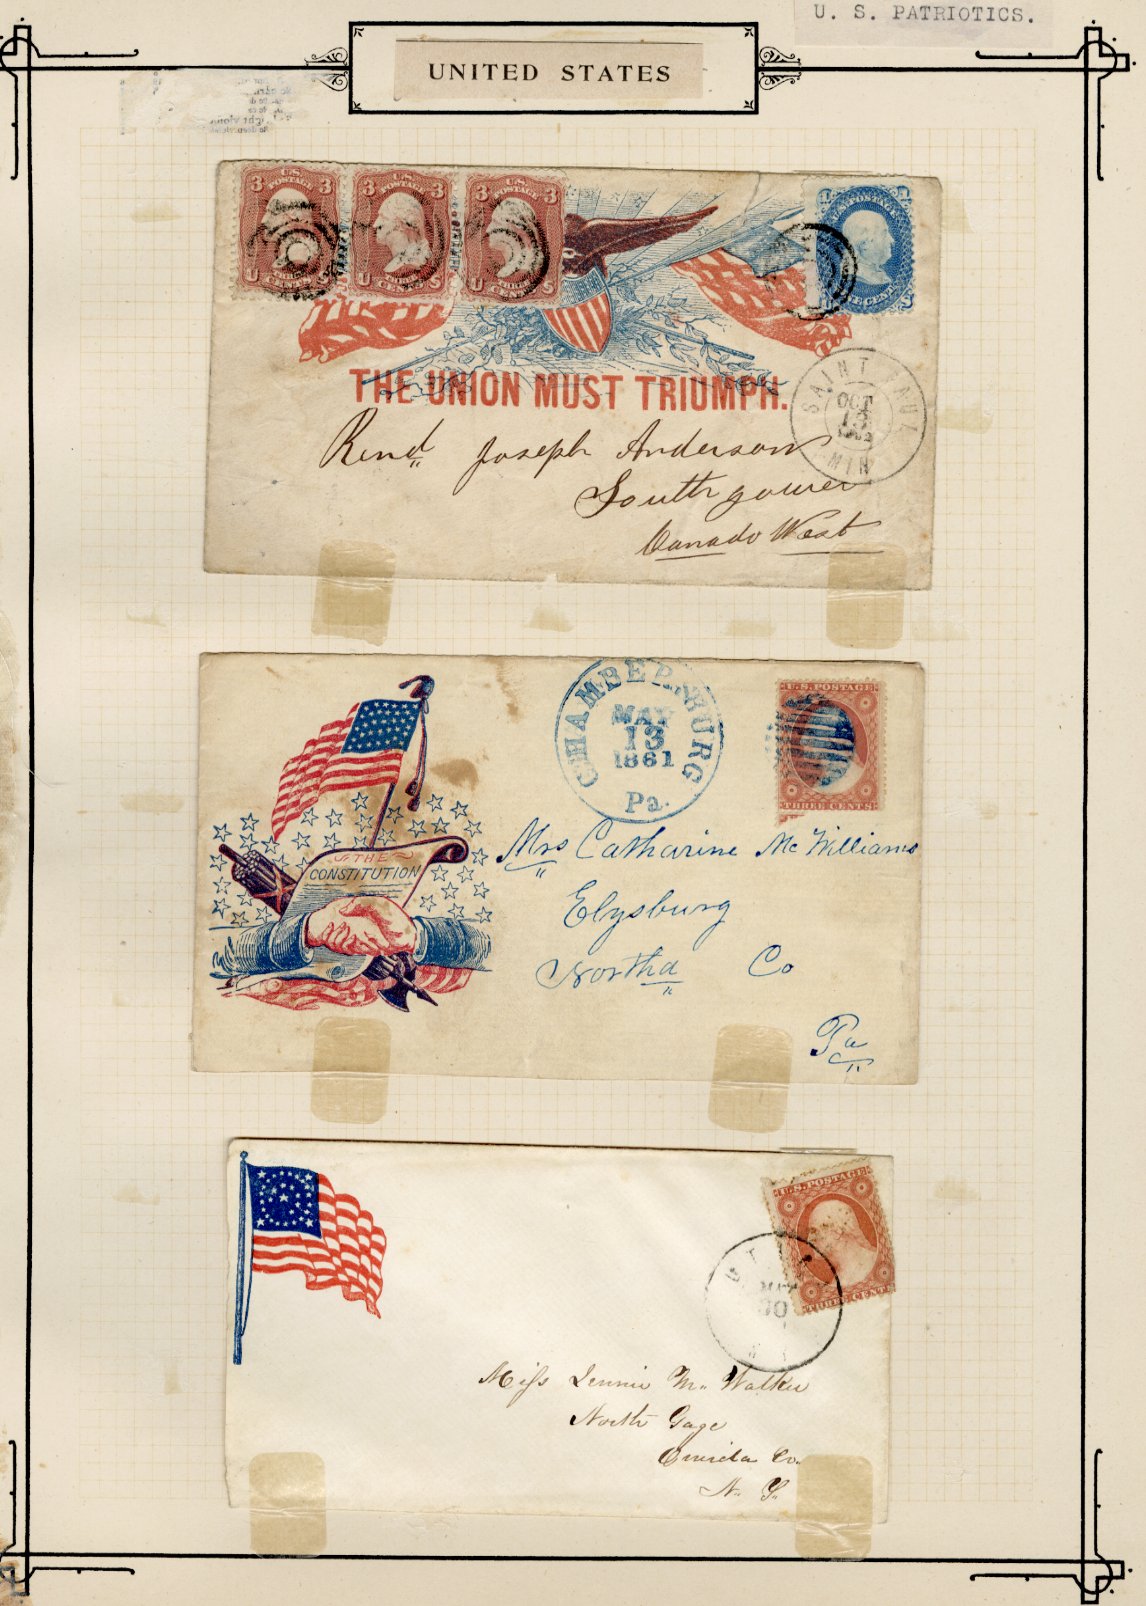 U. S. PATRIOTICS.
UNITED STATES
U.S. POSTAGE
3 3
U
CENTS
U.S. POSTAGE
3 3
U S
THREE CENTS
U.S. POSTAGE
3 3
U S
CENTS
U.S. POSTAGE
ONE CENT.
THE UNION MUST TRIUMPH.
SAINT PAUL
OCT
13
MIN
Revnd Joseph Anderson
South gower
Canada West
CHAMBERSBURG
MAY
13
1861
Pa.
U.S. POSTAGE
THREE CENTS
THE
CONSTITUTION
Mrs Catharine Mc Williams
Elysburg
Northd Co
Pa
U.S. POSTAGE
THREE CENTS
MAY
30
Miss Jennie M. Walker
North Gage
Oneida Co.
N. Y.